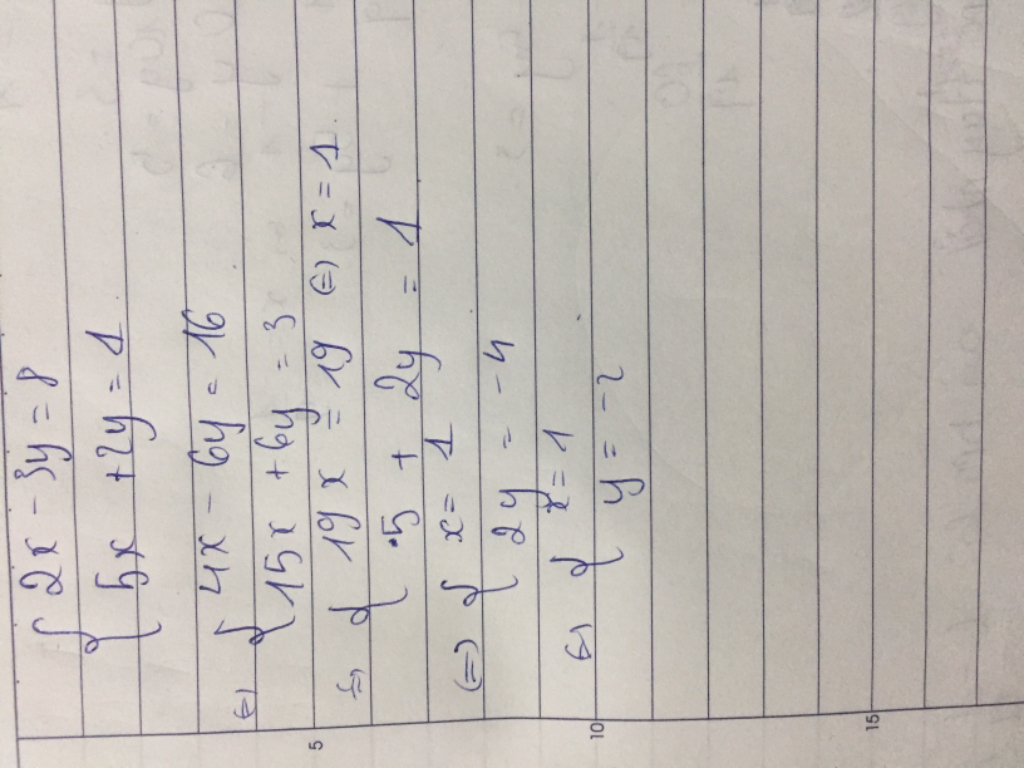 { 2x - 3y = 8
5x + 2y = 1
(=) { 4x - 6y = 16
15x + 6y = 3
(=) { 19x = 19 (=) x = 1
5 + 2y = 1
(=) { x = 1
2y = -4
(=) { x = 1
y = -2
5
10
15